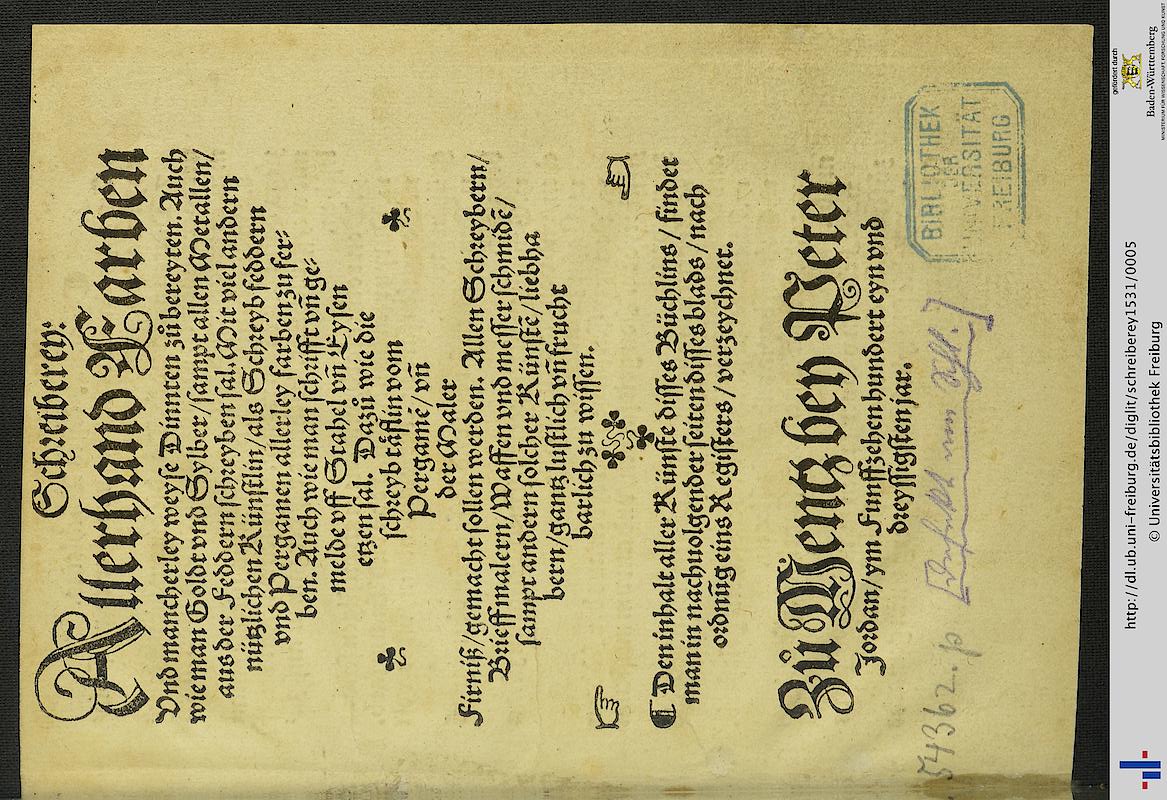 Schreiberey:
Allerhand Farben
Vnd mancherley weyse Dinnten zů bereyten. Auch
wie man Goldt vnd Sylber / sampt allen Metallen /
aus der Feddern schreyben sal. Mit viel andern
nützlichen Künstlin / als Schreybfeddern
vnd Pergamen allerley farben zu fer⸗
ben. Auch wie man schrifft vñ ge⸗
melde vff Stahel vñ Eysen
etzen sal. Dazů wie die
schreybtäflin vom
Pergamē / vñ
der Maler
Firniß / gemacht sollen werden. Allen Schreybern /
Brieffmalern / Waffen vnd messer schmidē /
sampt andern solcher Künstē / liebha
bern / gantz lustlich vñ frucht
barlich zu wissen.
Den inhalt aller Künste disses Büchlins / findet
man in nachuolgender seiten disses blads / nach
ordnũg eins Registers / verzeychnet.
Zů Mentz bey Peter
Jordan / ym Funffzehenhundert eyn vnd
dreyssigsten jar.
BIBLIOTHEK
DER
UNIVERSITÄT
FREIBURG
54362. p
http://dl.ub.uni-freiburg.de/diglit/schreiberey1531/0005
© Universitätsbibliothek Freiburg
gefördert durch
Baden-Württemberg
MINISTERIUM FÜR WISSENSCHAFT, FORSCHUNG UND KUNST